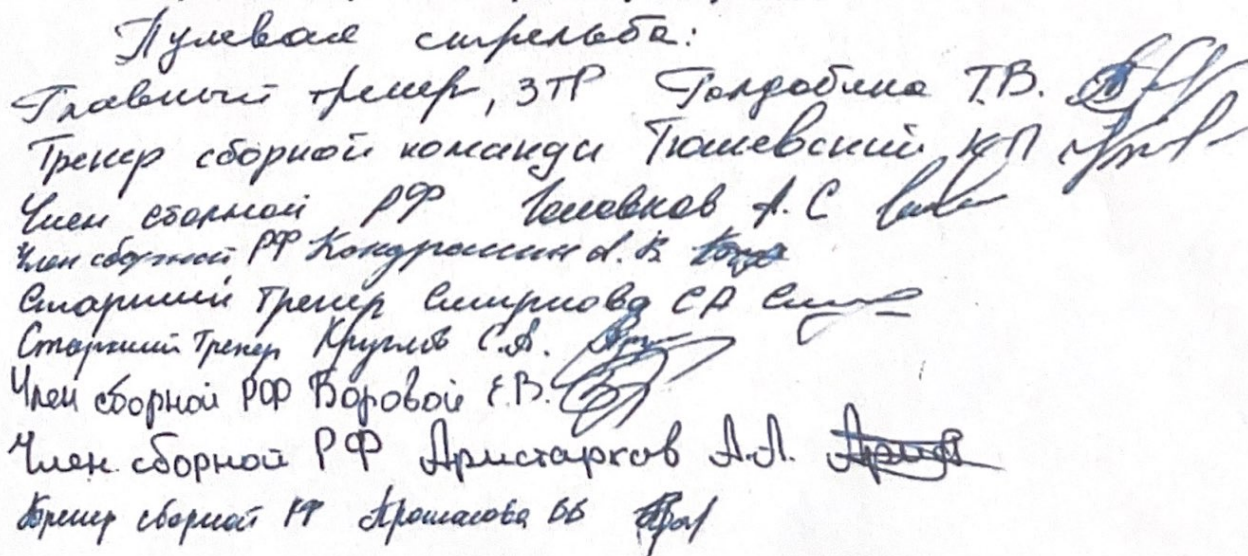 Пулевая стрельба:
Главный тренер, ЗТР Голдобина Т.В.
Тренер сборной команды Тюшевский КП
Член сборной РФ Головков А.С
Член сборной РФ Кондрашин А.В
Старший тренер Смирнова СА
Старший тренер Круглов С.А.
Член сборной РФ Воровой Е.В.
Член сборной РФ Аристарков А.А.
Тренер сборной РФ ВВ